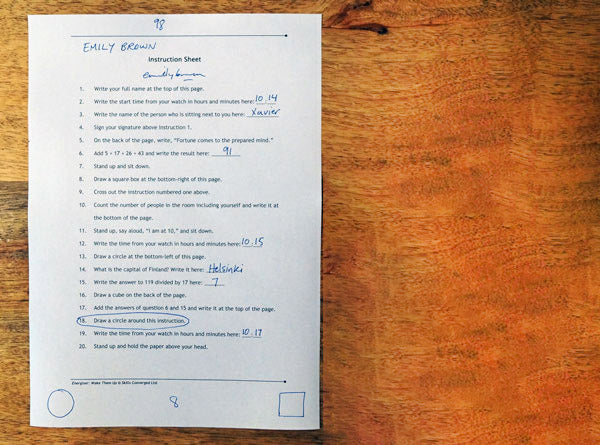 98
EMILY BROWN
Instruction Sheet
emilybrown
1. Write your full name at the top of this page.
2. Write the start time from your watch in hours and minutes here: 10.14
3. Write the name of the person who is sitting next to you here: Xavier
4. Sign your signature above instruction 1.
5. On the back of the page, write, "Fortune comes to the prepared mind."
6. Add 5 + 17 + 26 + 43 and write the result here: 91
7. Stand up and sit down.
8. Draw a square box at the bottom-right of this page.
9. Cross out the instruction numbered one above.
10. Count the number of people in the room including yourself and write it at
the bottom of the page.
11. Stand up, say aloud, "I am at 10," and sit down.
12. Write the time from your watch in hours and minutes here: 10.15
13. Draw a circle at the bottom-left of this page.
14. What is the capital of Finland? Write it here: Helsinki
15. Write the answer to 119 divided by 17 here: 7
16. Draw a cube on the back of the page.
17. Add the answers of question 6 and 15 and write it at the top of the page.
18. Draw a circle around this instruction.
19. Write the time from your watch in hours and minutes here: 10.17
20. Stand up and hold the paper above your head.
Energiser: Wake Them Up © Skills Converged Ltd.
8